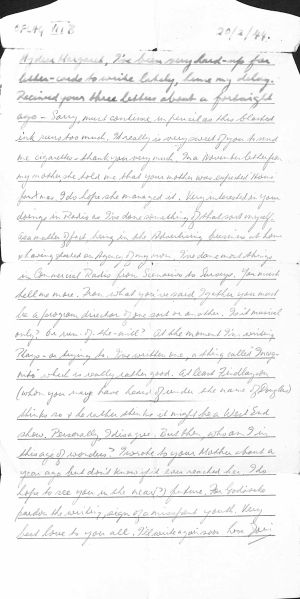 OFLAG VIIB 20/2/44.
My dear Margaret, I've been very hard-up for
letter-cards to write lately, hence my delay.
Received your three letters about a fortnight
ago - Sorry, must continue in pencil as this blasted
ink runs too much. It really is very sweet of you to send
me cigarettes - thank you very much. In a November letter from
my mother she told me that your mother was expected Home
for Xmas. I do hope she managed it. Very interested in your
doings in Radio as I've done something of that sort myself.
As a matter of fact being in the Advertising business at home
& having started an Agency of my own I've done most things
in Commercial Radio from Scenarios to Surveys. You must
tell me more. From what you've said I gather you must
be a program director of one sort or another. Is it musical
only? Or run-of-the-mill? At the moment I'm writing
Plays - or trying to. I've written one, a thing called
which is really rather good. At least Findlayson
(whom you may have heard of under the name of Douglas)
thinks so & he rather thinks it might be a West End
show. Personally, I disagree. But then, who am I in
this age of wonders? I wrote to your Mother about a
year ago but don't know if it ever reached her. I do
hope to see you in the near(?) future. For God's sake
pardon the writing, sign of a misspent youth. Very
best love to you all. I'll write again soon.